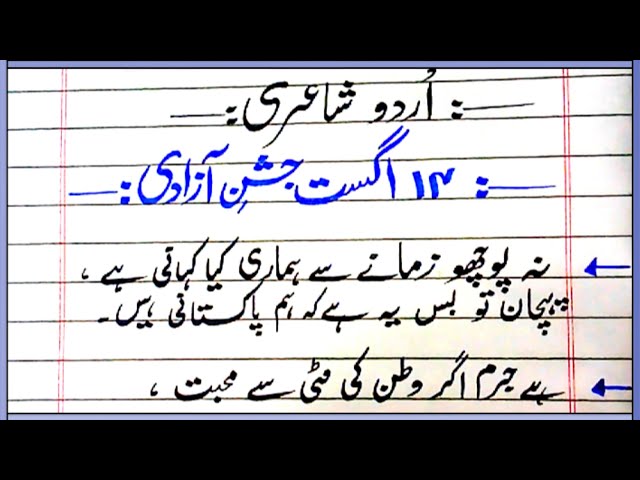 :اُردو شاعری:
:۱۴ اگست جشنِ آزادی:
نہ پوچھو زمانے سے ہماری کیا کہانی ہے ،
پہچان تو بس یہ ہے کہ ہم پاکستانی ہیں۔
ہے جرم اگر وطن کی مٹی سے محبت ،